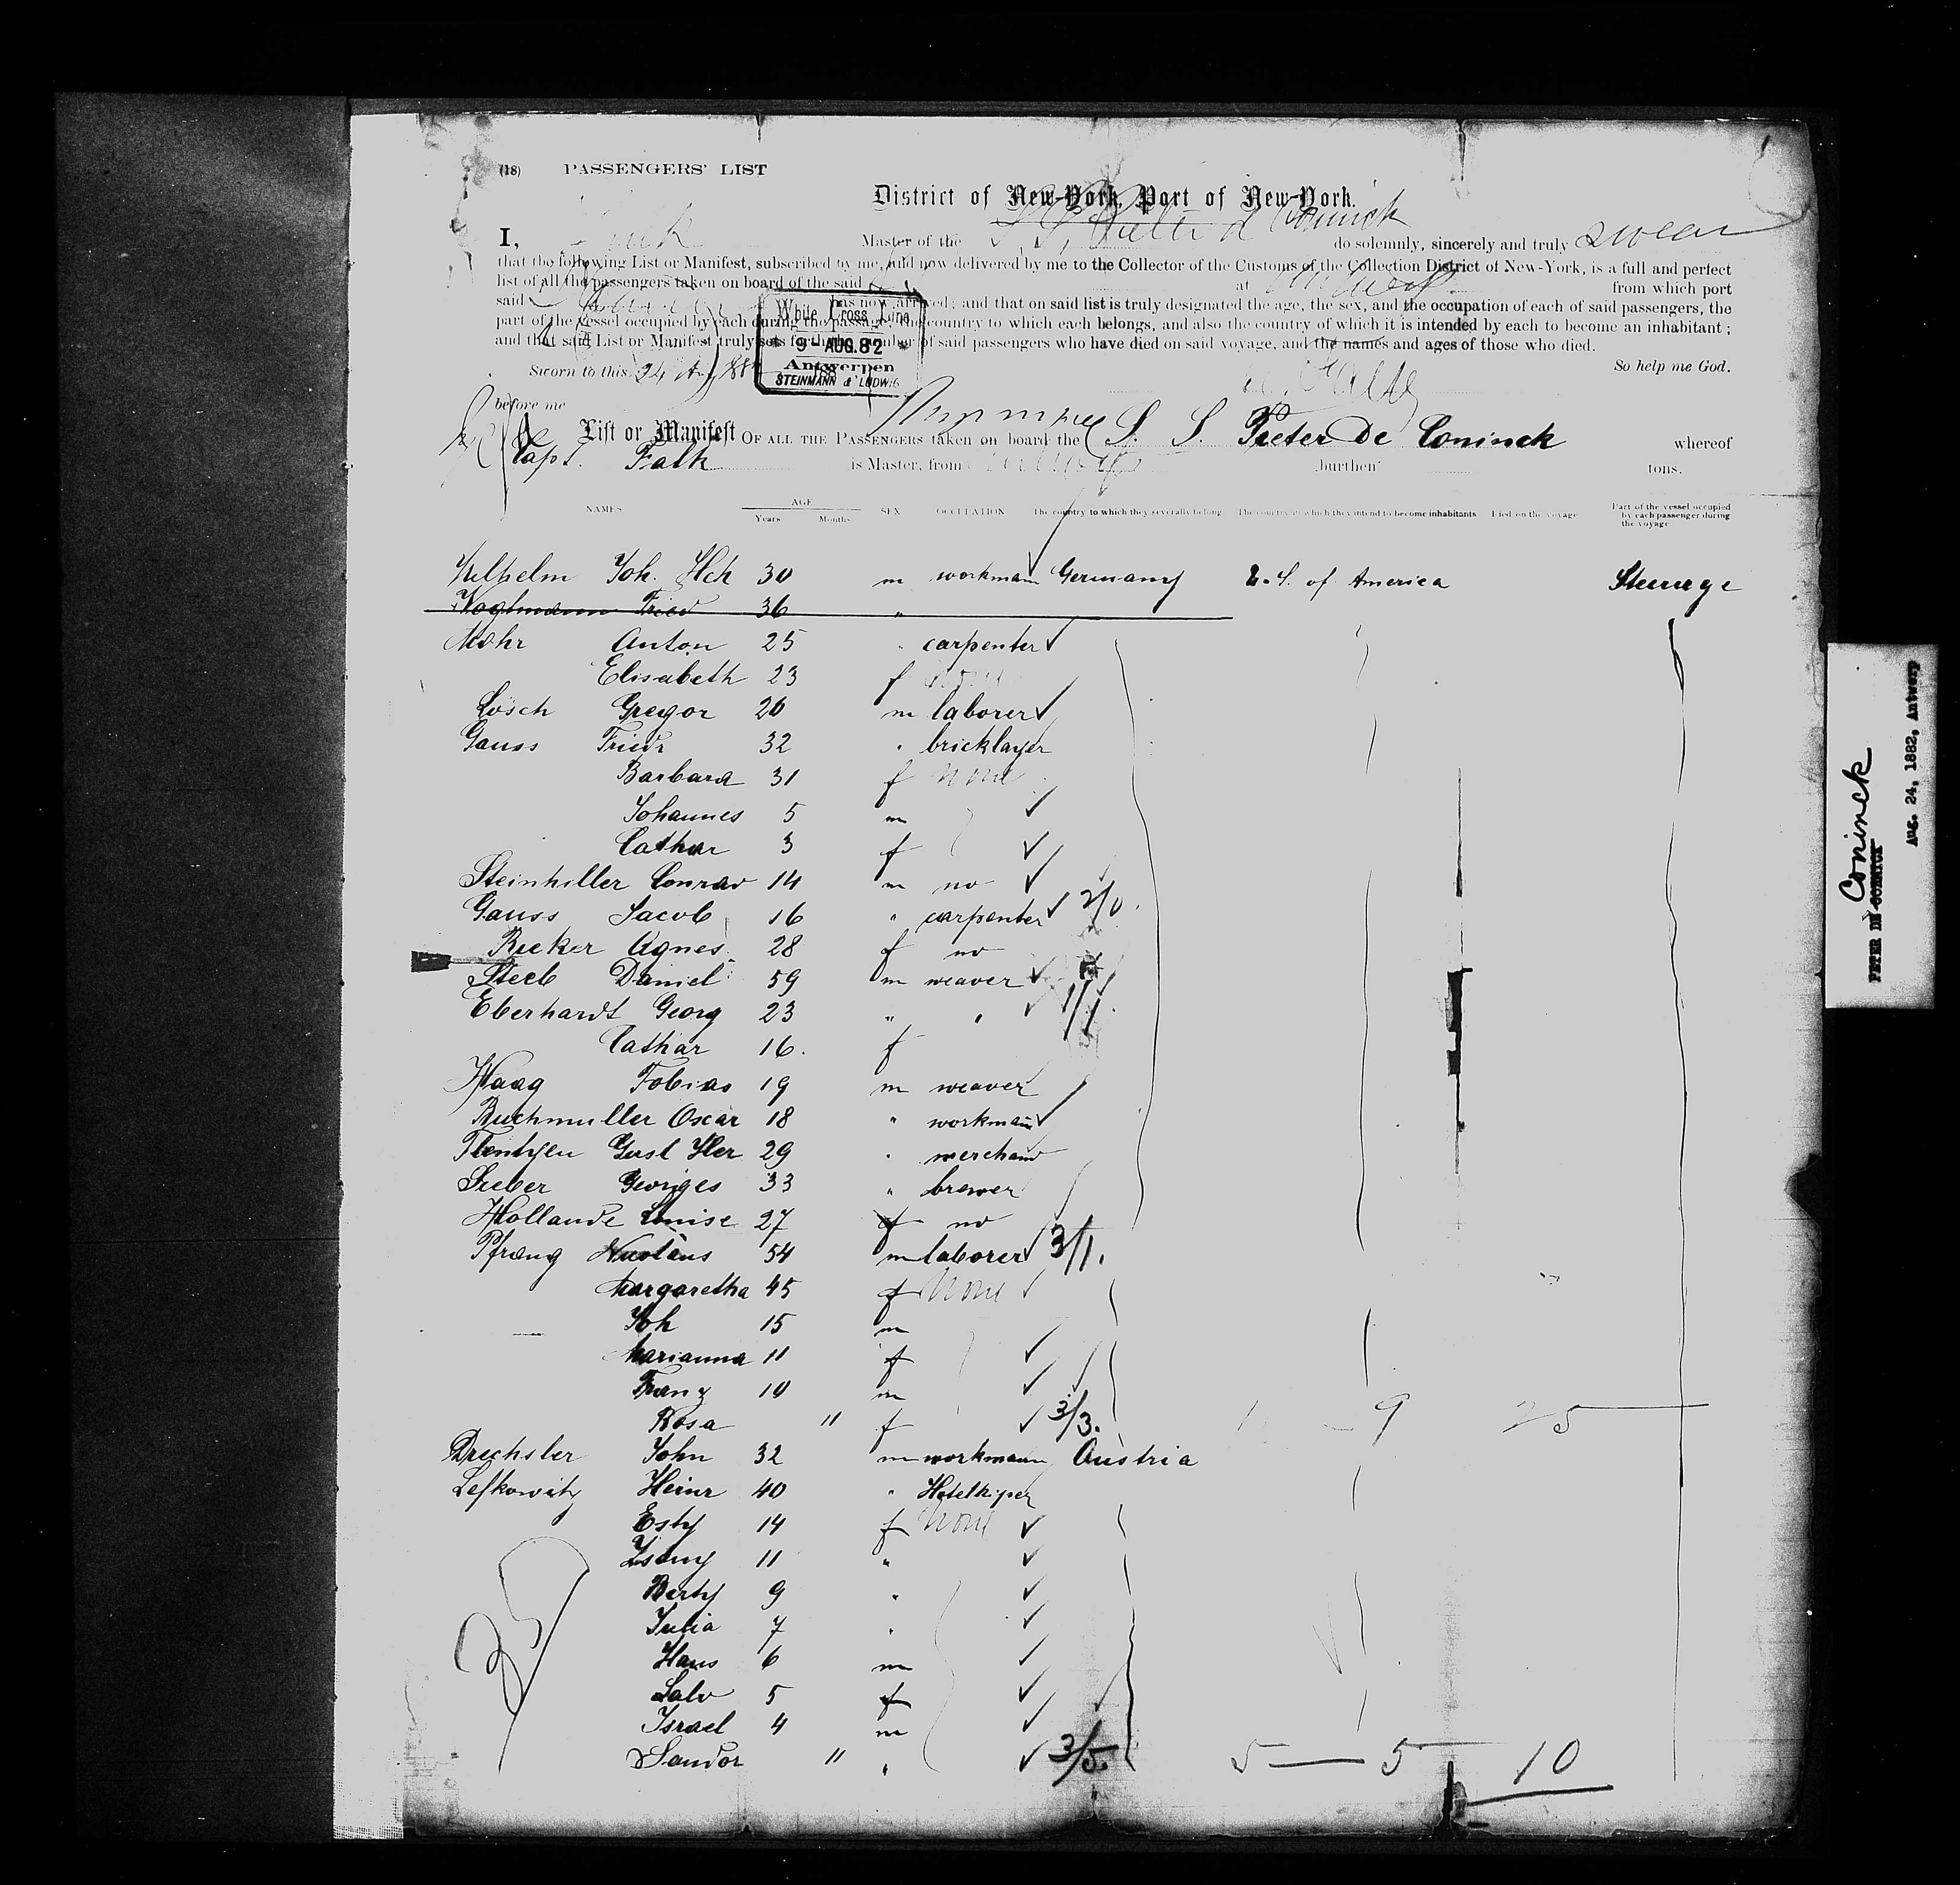 1
(18) PASSENGERS' LIST
District of New-York, Port of New-York.
I, Falk Master of the S. S. Pieter de Coninck do solemnly, sincerely and truly swear
that the following List or Manifest, subscribed by me, and now delivered by me to the Collector of the Customs of the Collection District of New-York, is a full and perfect
list of all the passengers taken on board of the said at Antwerp from which port
said has now arrived; and that on said list is truly designated the age, the sex, and the occupation of each of said passengers, the
part of the vessel occupied by each during the passage, the country to which each belongs, and also the country of which it is intended by each to become an inhabitant;
and that said List or Manifest truly sets forth the number of said passengers who have died on said voyage, and the names and ages of those who died.
White Cross Line
9-AUG.82
Antwerpen
STEINMANN & LUDWIG
Sworn to this 24 Aug 188 So help me God.
before me
List or Manifest OF ALL THE PASSENGERS taken on board the S. S. Pieter De Coninck whereof
Capt. Falk is Master, from Antwerp burthen tons.
NAMES AGE Years Months SEX OCCUPATION The country to which they severally belong The country in which they intend to become inhabitants Died on the voyage Part of the vessel occupied by each passenger during the voyage
Wilhelm Joh. Hch 30 m workman Germany U.S. of America Steerage
Vogtmann Fried 36 "
Mohr Anton 25 " carpenter
Elisabeth 23 f none
Lösch Gregor 20 m laborer
Gauss Friedr 32 " bricklayer
Barbara 31 f none
Johannes 5 m
Cathar 3 f
Steinhiller Conrad 14 m no
Gauss Jacob 16 " carpenter 2/0.
Rieker Agnes 28 f no
Steeb Daniel 59 m weaver
Eberhardt Georg 23 " " 1/1.
Cathar 16. f
Haag Tobias 19 m weaver
Buchmuller Oscar 18 " workman
Gust Her 29 " merchand
Lieber Georges 33 " brewer
Hollande Louise 27 f no
Pfrang Nicolaus 54 m laborer 3/1.
Margaretha 45 f none
Joh 15 m
Marianna 11 f
Franz 10 m
Rosa " f 3/3. 9 25
Drechsler John 32 m workmann Austria
Lefkowitz Heinr 40 " Hotelkiper
Esty 14 f none
11 "
Berty 9 "
Julia 7 "
Hans 6 m
Salv 5 f
Israel 4 m
Sandor " " 3/5. 5 — 5 10
Coninck
PETER DE CORNICK
Aug. 24, 1882, Antwerp